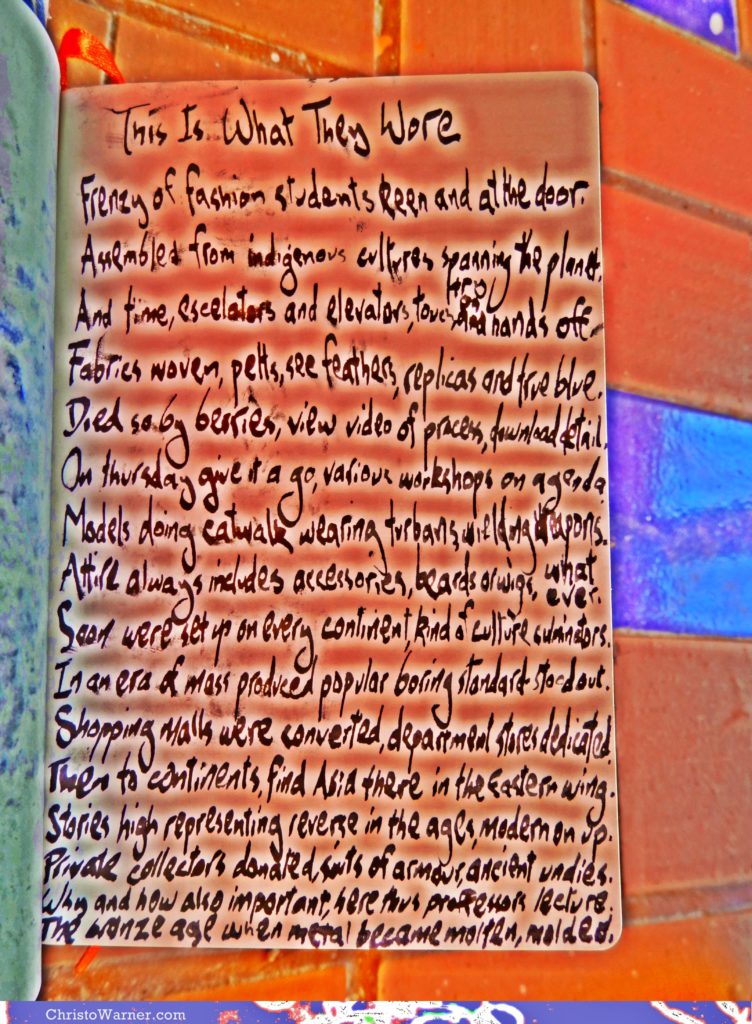 This Is What They Wore
Frenzy of fashion students keen and at the door.
Assembled from indigenous cultures spanning the planet.
And time, escelators and elevators, touch and hands off.
Fabrics woven, pelts, see feathers, replicas and true blue.
Died so by berries, view video of process, download detail.
On thursday give it a go, various workshops on agenda
Models doing catwalk wearing turbans, wielding weapons.
Attire always includes accessories, beards or wigs, what ever.
Soon were set up on every continent, kind of culture culminators.
In an era of mass produced popular boring standard stood out.
Shopping malls were converted, department stores dedicated.
Then to continents, find Asia there in the Eastern wing.
Stories high representing reverse in the ages, modern on up.
Private collectors donated, suits of armour, ancient undies.
Why and how also important, here thus professors lecture.
The bronze age when metal became molten, molded.
ChristoWarner.com